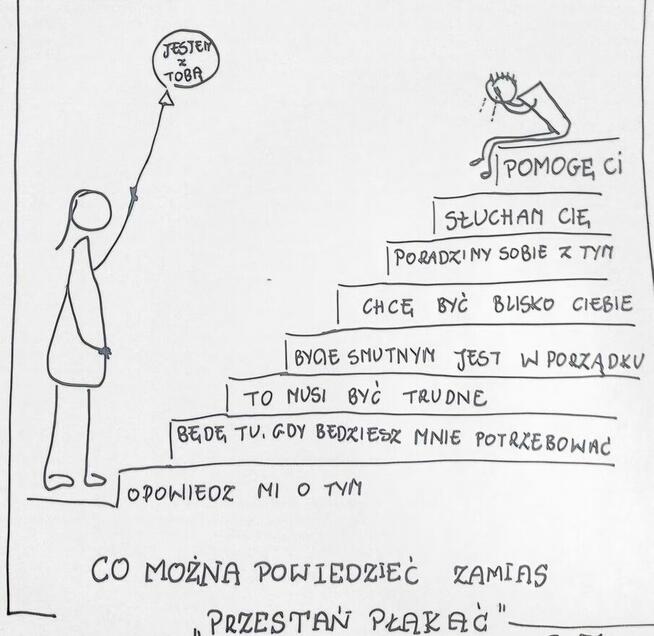 JESTEM
Z
TOBĄ
POMOGĘ Ci
SŁUCHAM CIĘ
PORADZIMY SOBIE Z TYM
CHCĘ BYĆ BLISKO CIEBIE
BYCIE SMUTNYM JEST W PORZĄDKU
TO MUSI BYĆ TRUDNE
BĘDĘ TU, GDY BEDZIESZ MNIE POTRZEBOWAĆ
OPOWIEDZ MI O TYM
CO MOŻNA POWIEDZIEĆ ZAMIAS
„PRZESTAŃ PŁAKAĆ"